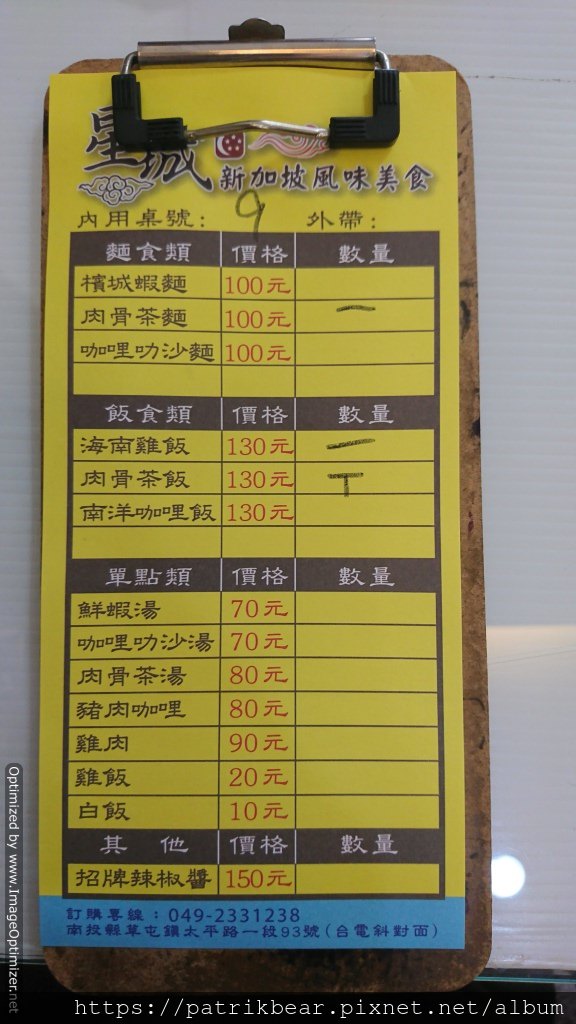 星城
新加坡風味美食
內用桌號： 9 外帶：
麵食類 價格 數量
檳城蝦麵 100元
肉骨茶麵 100元 一
咖哩叻沙麵 100元
飯食類 價格 數量
海南雞飯 130元 一
肉骨茶飯 130元 T
南洋咖哩飯 130元
單點類 價格 數量
鮮蝦湯 70元
咖哩叻沙湯 70元
肉骨茶湯 80元
豬肉咖哩 80元
雞肉 90元
雞飯 20元
白飯 10元
其 他 價格 數量
招牌辣椒醬 150元
訂購專線：049-2331238
南投縣草屯鎮太平路一段93號(台電斜對面)
Optimized by www.ImageOptimizer.net
https://patrikbear.pixnet.net/album